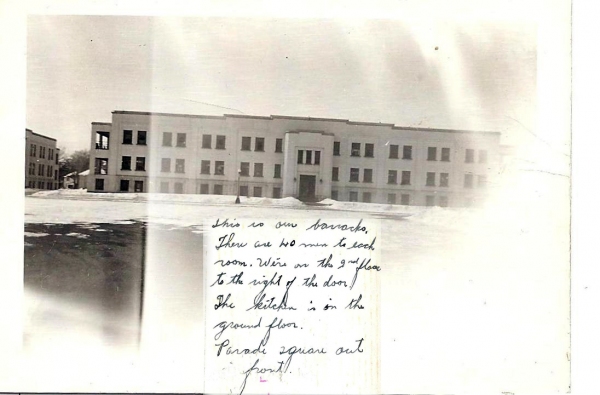 This is our barracks.
There are 40 men to each
room. We're on the 2nd floor
to the right of the door.
The kitchen is in the
ground floor.
Parade square out
front.